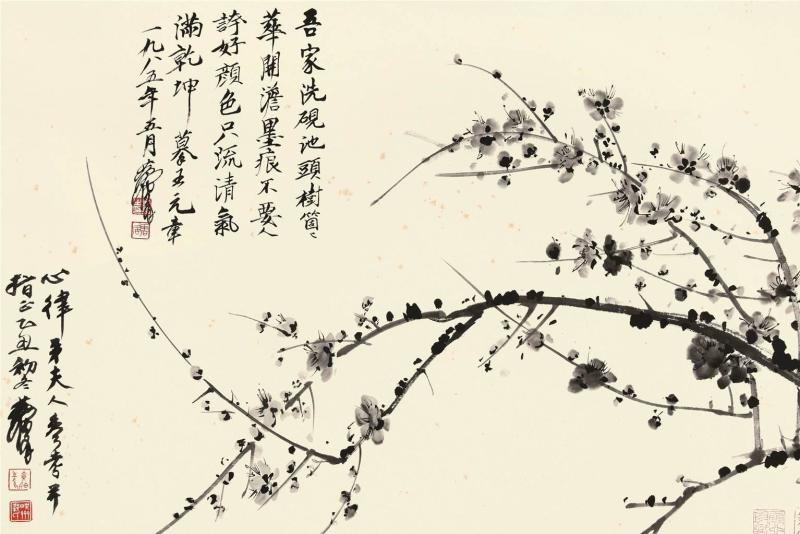 吾家洗硯池頭樹箇〻
華開澹墨痕不要人
誇好顏色只流清氣
滿乾坤 摹王元章
一九八五年五月
心律弟夫人
指正乙丑初冬